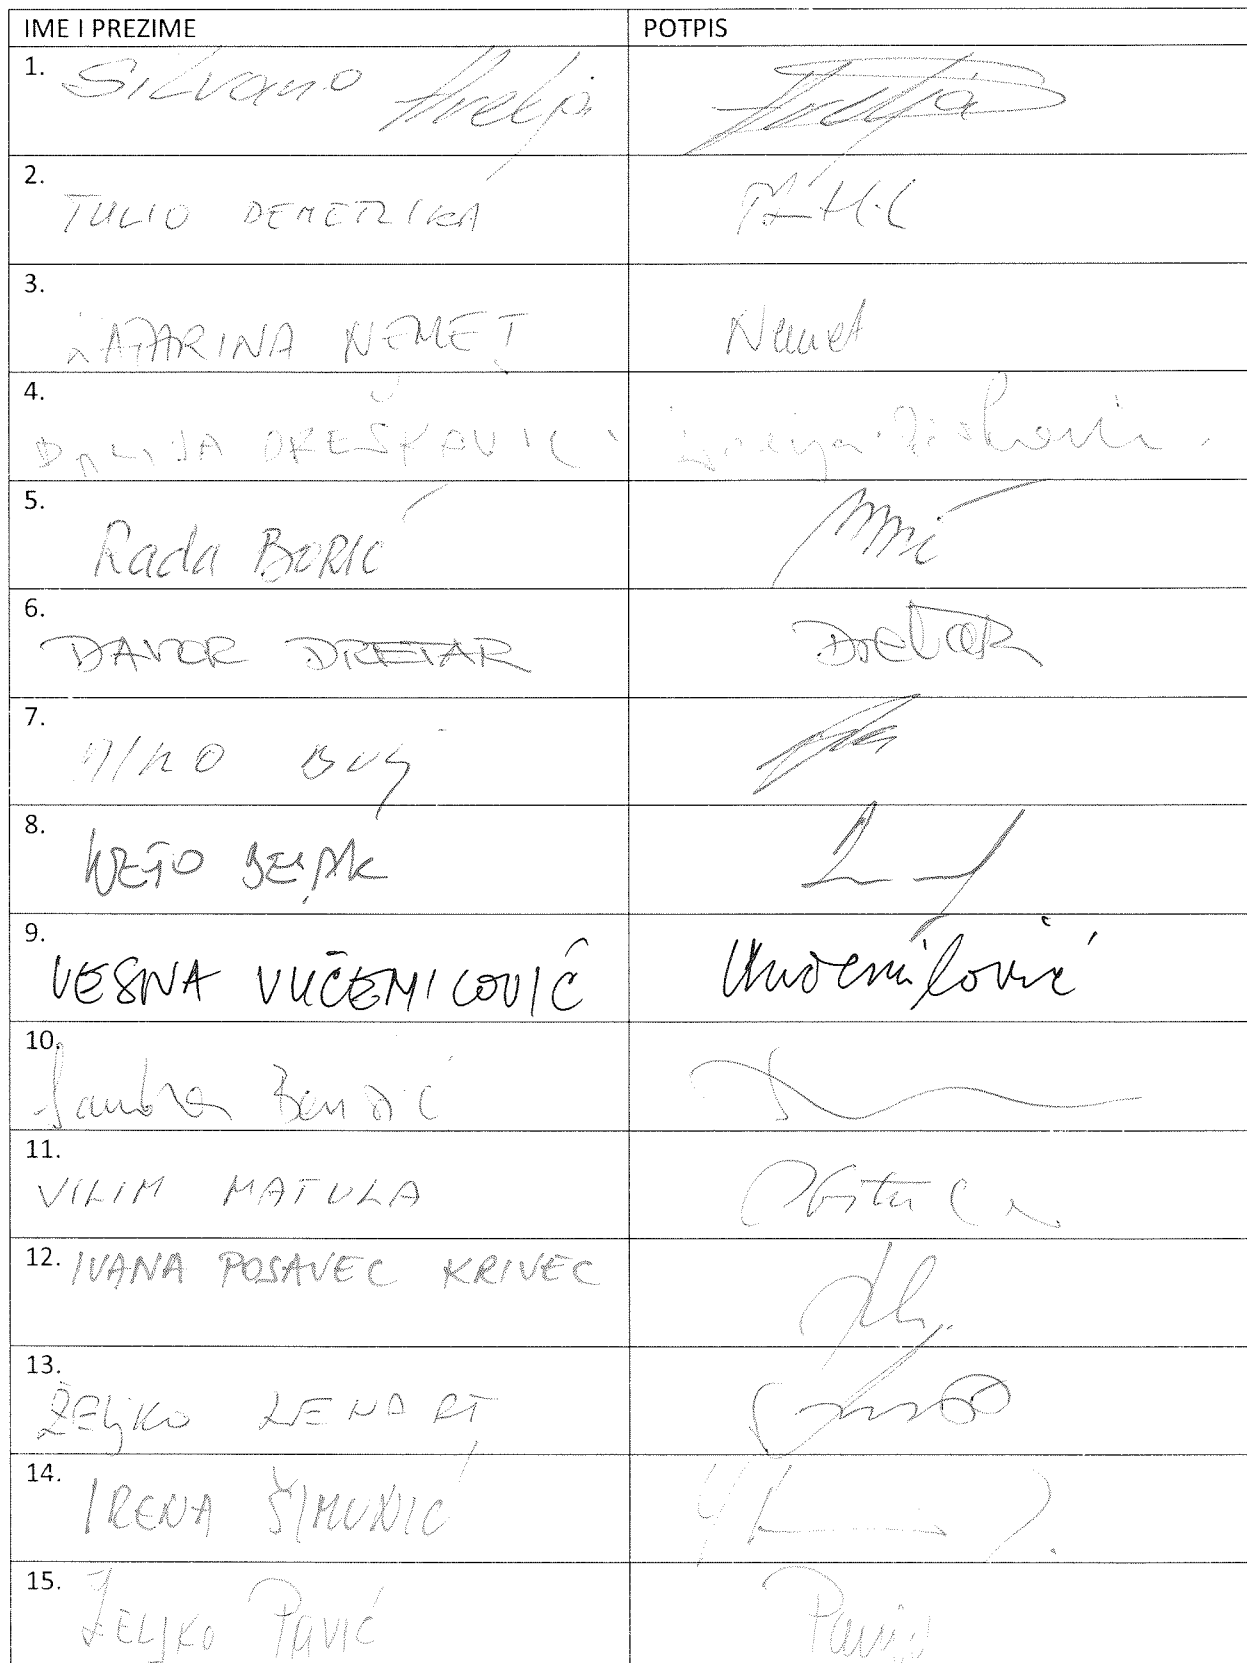 IME I PREZIME POTPIS
1. Silvano Hrelja Hrelja
2. TULIO DEMETLIKA
3. KATARINA NEMET Nemet
4. DALIJA OREŠKOVIĆ
5. Rada BORIĆ
6. DAVOR DRETAR DRETAR
7. MIRO BULJ
8. KREŠO BELJAK
9. VESNA VUČEMILOVIĆ Vučemilović
10. Sandra Benčić
11. VILIM MATULA
12. IVANA POSAVEC KRIVEC
13. ŽELJKO LENART
14. IRENA ŠIMUNIĆ
15. ŽELJKO PAVIĆ Pavić